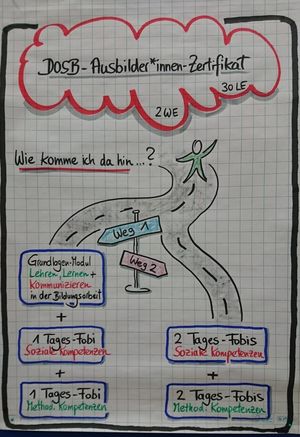 DOSB-Ausbilder*innen-Zertifikat
30 LE
2 WE
Wie komme ich da hin...?
Weg 1
Weg 2
Grundlagen-Modul
Lehren, Lernen +
Kommunizieren
in der Bildungsarbeit
+
1 Tages-Fobi
Soziale Kompetenzen
+
1 Tages-Fobi
Method. Kompetenzen
2 Tages-Fobis
Soziale Kompetenzen
+
2 Tages-Fobis
Method. Kompetenzen